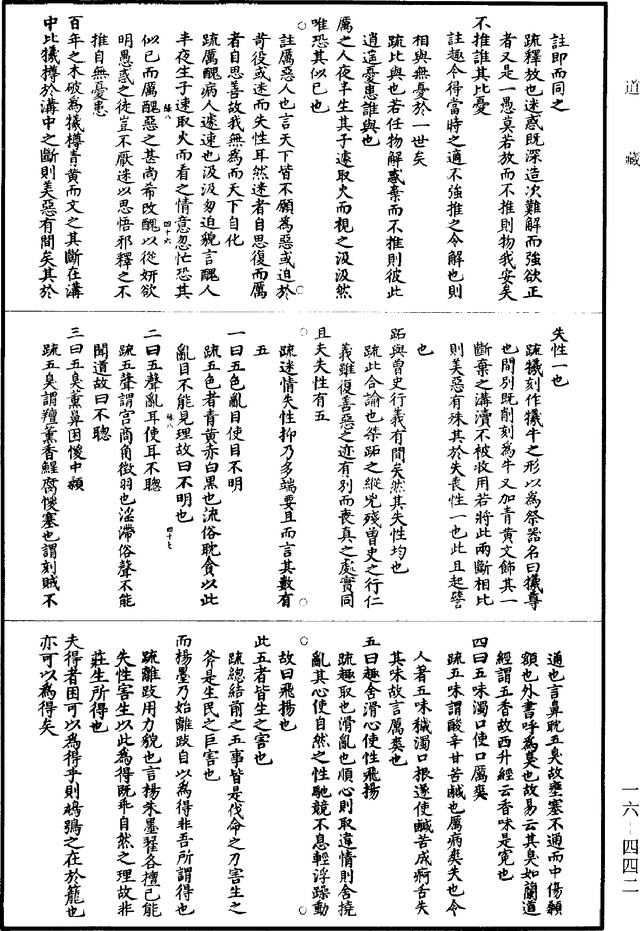 道藏
註即而同之
疏釋放也迷惑既深造次難解而強欲正
者又是一愚莫若放而不推則物我安矣
不推誰其比憂
註趣令得當時之適不強推之令解也則
相與無憂於一世矣
疏比與也若任物解惑棄而不推則彼此
逍遙憂患誰與也
厲之人夜半生其子遽取火而視之汲汲然
唯恐其似己也
註厲惡人也言天下皆不願為惡或迫於
苛役或迷而失性耳然迷者自思復而厲
者自思善故我無為而天下自化
疏厲醜病人遽速也汲汲匆迫貌言醜人
半夜生子速取火而看之情意忽忙恐其
似己而厲醜惡之甚尚希改醜以從妍欲
明愚惑之徒豈不厭迷以思悟邪釋之不
推自無憂患
百年之木破為犧樽青黃而文之其斷在溝
中比犧樽於溝中之斷則美惡有間矣其於
失性一也
疏犧刻作犧牛之形以為祭器名曰犧尊
也間別既削刻為牛又加青黃文飾其一
斷棄之溝瀆不被收用若將此兩斷相比
則美惡有殊其於失喪性一也此且起譬
也
跖與曾史行義有間矣然其失性均也
疏此合諭也桀跖之縱兇殘曾史之行仁
義雖復善惡之迹有別而喪真之處實同
且夫失性有五
疏迷情失性抑乃多端要且而言其數有
五
一曰五色亂目使目不明
疏五色者青黃赤白黑也流俗耽貪以此
亂目不能見理故曰不明也
二曰五聲亂耳使耳不聰
疏五聲謂宮商角徵羽也淫滯俗聲不能
聞道故曰不聰
三曰五臭薰鼻困惾中顙
疏五臭謂羶薰香鯹腐惾塞也謂刻賊不
通也言鼻耽五臭故壅塞不通而中傷顙
額也外書呼為臭也故易云其臭如蘭道
經謂五香故西升經云香味是冤也
四曰五味濁口使口厲爽
疏五味謂酸辛甘苦鹹也厲病爽失也令
人著五味穢濁口根遂使鹹苦成痾舌失
其味故言厲爽也
五曰趣舍滑心使性飛揚
疏趣取也滑亂也順心則取違情則舍撓
亂其心使自然之性馳競不息輕浮躁動
故曰飛揚也
此五者皆生之害也
疏總結前之五事皆是伐命之刀害生之
斧是生民之巨害也
而楊墨乃始離跂自以為得非吾所謂得也
疏離跂用力貌也言楊朱墨翟各擅己能
失性害生以此為得既乖自然之理故非
莊生所得也
夫得者困可以為得乎則鳩鴞之在於籠也
亦可以為得矣
一六-四四二